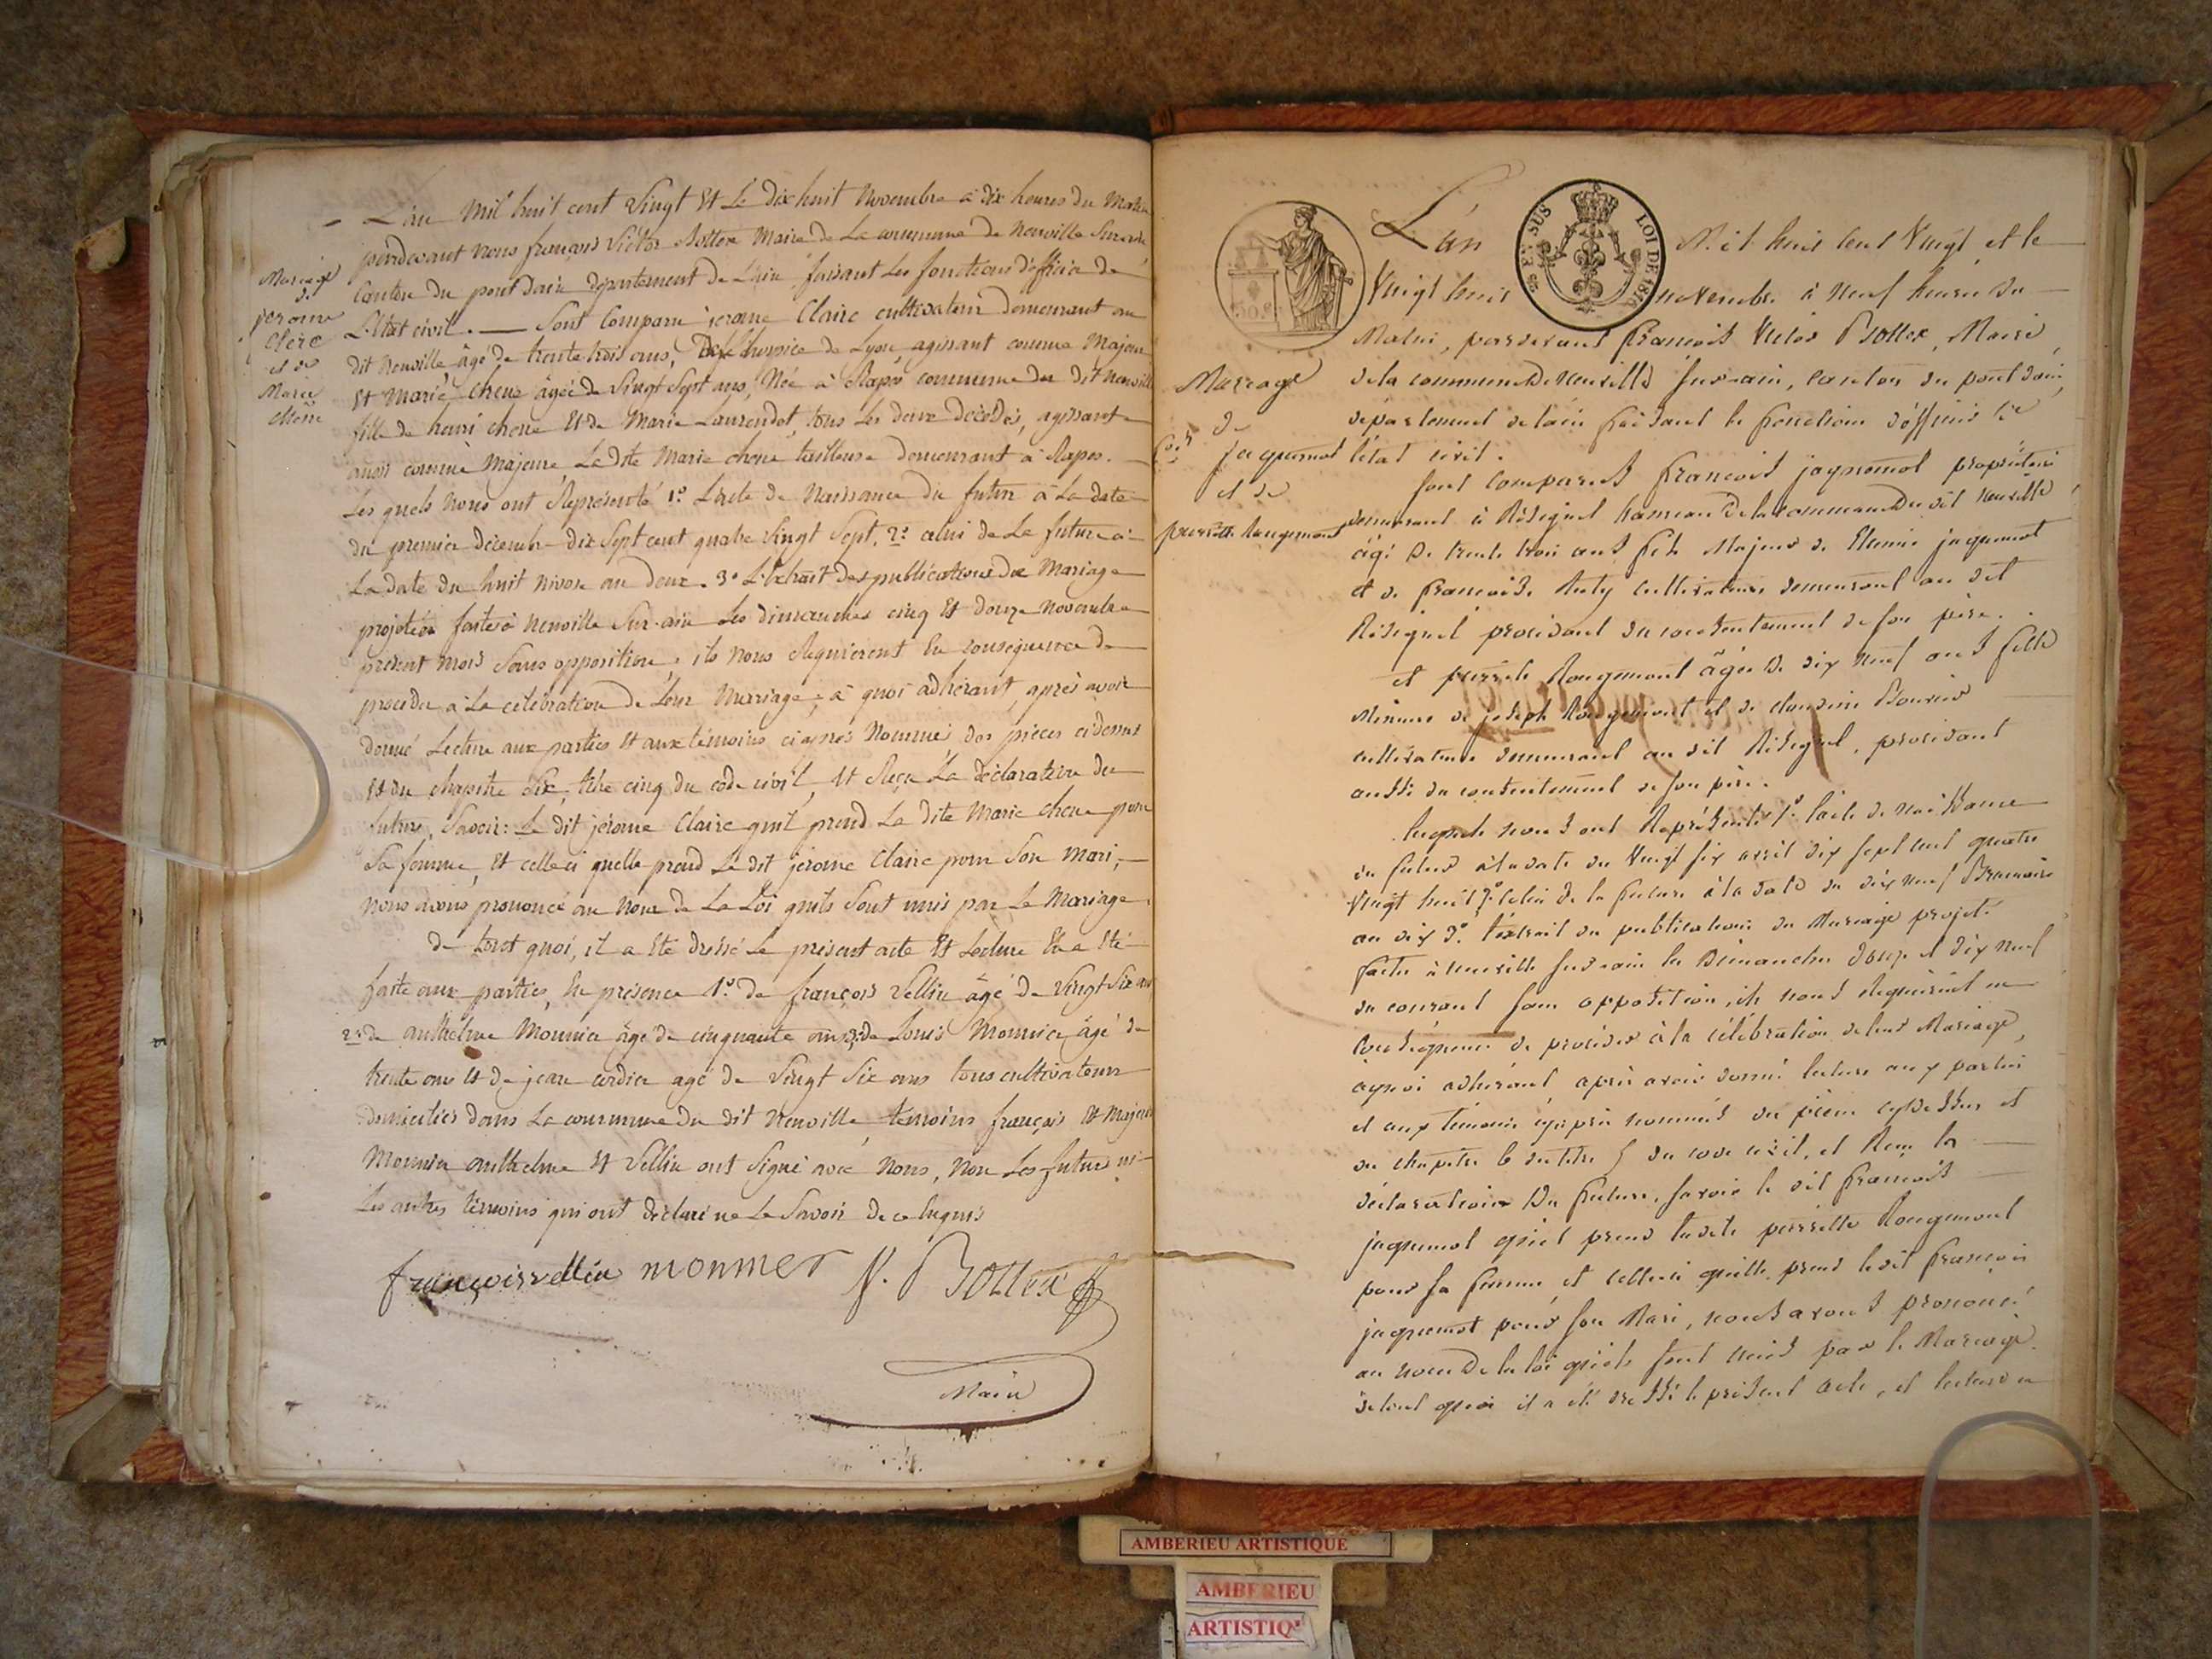 L'an mil huit cent vingt Et Le dix huit Novembre à dix heures du Matin
pardevant nous françois Victor Bottex Maire de La commune de Neuville Sur ain
Canton du pont dain département de L'ain faisant Les fonctions d'officier de
L'Etat civil. — Sont Comparu jerome Claire cultivateur demeurant au
dit Neuville âgé de trente trois ans, De L'hospice de Lyon, agissant comme Majeur
Et Marie chene âgée de Vingt Sept ans, Née à Rapos commune du dit Neuville
fille de henri chene Et de Marie Laurendot, tous Les deux décédés, agissante
aussi comme Majeure, La dite Marie chene tailleuse demeurant à Rapos.
Les quels nous ont Représenté 1º L'acte de Naissance du futur à La date
du premier décembre dix Sept cent quatre Vingt Sept. 2º celui de La future à
La date du huit nivose an deux. 3º L'Extrait des publications de Mariage
projetées faite à neuville Sur-ain Les dimanches cinq Et douze novembre
présent mois Sans opposition, ils nous Requierent En consequence de
proceder à La célébration de Leur Mariage; à quoi adhérant, après avoir
donné Lecture aux parties Et aux témoins ci après Nommés des pieces ci dessus
Et du chapitre Six, titre cinq du code civil, Et Reçu La déclaration des
futurs, Savoir: Le dit jérome Claire qu'il prend La dite Marie chene pour
Sa femme, Et celle ci quelle prend Le dit jérome Claire pour Son mari,
nous avons prononcé au nom de La Loi quils Sont unis par Le Mariage.
de tout quoi, il a Eté dressé Le présent acte Et Lecture En a Eté
faite aux parties, En présence 1º de françois Vellin âgé de Vingt Six ans
2º de anthelme Monnier âgé de cinquante ans 3º de Louis Monnier âgé de
trente ans Et de jean cordier agé de Vingt Six ans tous cultivateurs
domiciliés dans La commune du dit Neuville témoins françois Et Majeurs
Monnier anthelme Et Vellin ont Signé avec Nous, Non Les futurs ni
Les autres témoins qui ont déclaré ne Le Savoir de ce Enquis
françois vellin monnier V. Bottex
Maire
Mariage
de
jerome
Claire
et de
Marie
chene
L'an Mil huit cent Vingt et le
SUS
LOI DE 1816
Vingt huit novembre à neuf heures du
Matin, pardevant françois Victor Bottex, Maire
de la commune De neuville sur-ain, canton du pont dain,
département de lain faisant les fonctions d'officier de
létat civil.
sont comparus françois jaquemot propriétaire
demeurant à Résignel hameau de la commune Du dit neuville,
âgé de trente trois ans fils Majeur de Etienne jaquemot
et de françoise Auty cultivateurs demeurant au dit
Résignel procédant du consentement de son père.
et pierrette Rougemont âgée de dix neuf ans fille
Mineure de joseph Rougemont et de claudine Bouvier
cultivateurs demeurant au dit Résignel, procédant
aussi du consentement de son père.
lesquels nous ont Représenté 1º lacte de naissance
du futur à la date du Vingt six avril dix sept cent quatre
Vingt huit 2º celui de la future à la date du dix neuf Brumaire
an dix 3º lextrait des publications du Mariage projeté
faites à neuville sur-ain les Dimanches douze et dix neuf
du courant sans opposition, ils nous requierent en
conséquence de procéder à la célébration de leur Mariage,
à quoi adhérant après avoir donné lecture aux parties
et aux témoins cyaprès nommés des pièces cydessus et
du chapitre 6 du titre 5 du code civil, et Reçu la
déclaration Des futurs, savoir le dit françois
jaquemot quiel prend ladite pierrette Rougemont
pour sa femme et celle ci quelle prend ledit françois
jaquemot pour son Mari, nous avons prononcé
au nom De la loi quiels sont unis par le Mariage.
de tout quoi il a été dressé le présent acte, et lecture en
Mariage
de
fois
jaquemot
et de
pierrette Rougemont
AMBERIEU ARTISTIQUE
AMBERIEU
ARTISTIQU